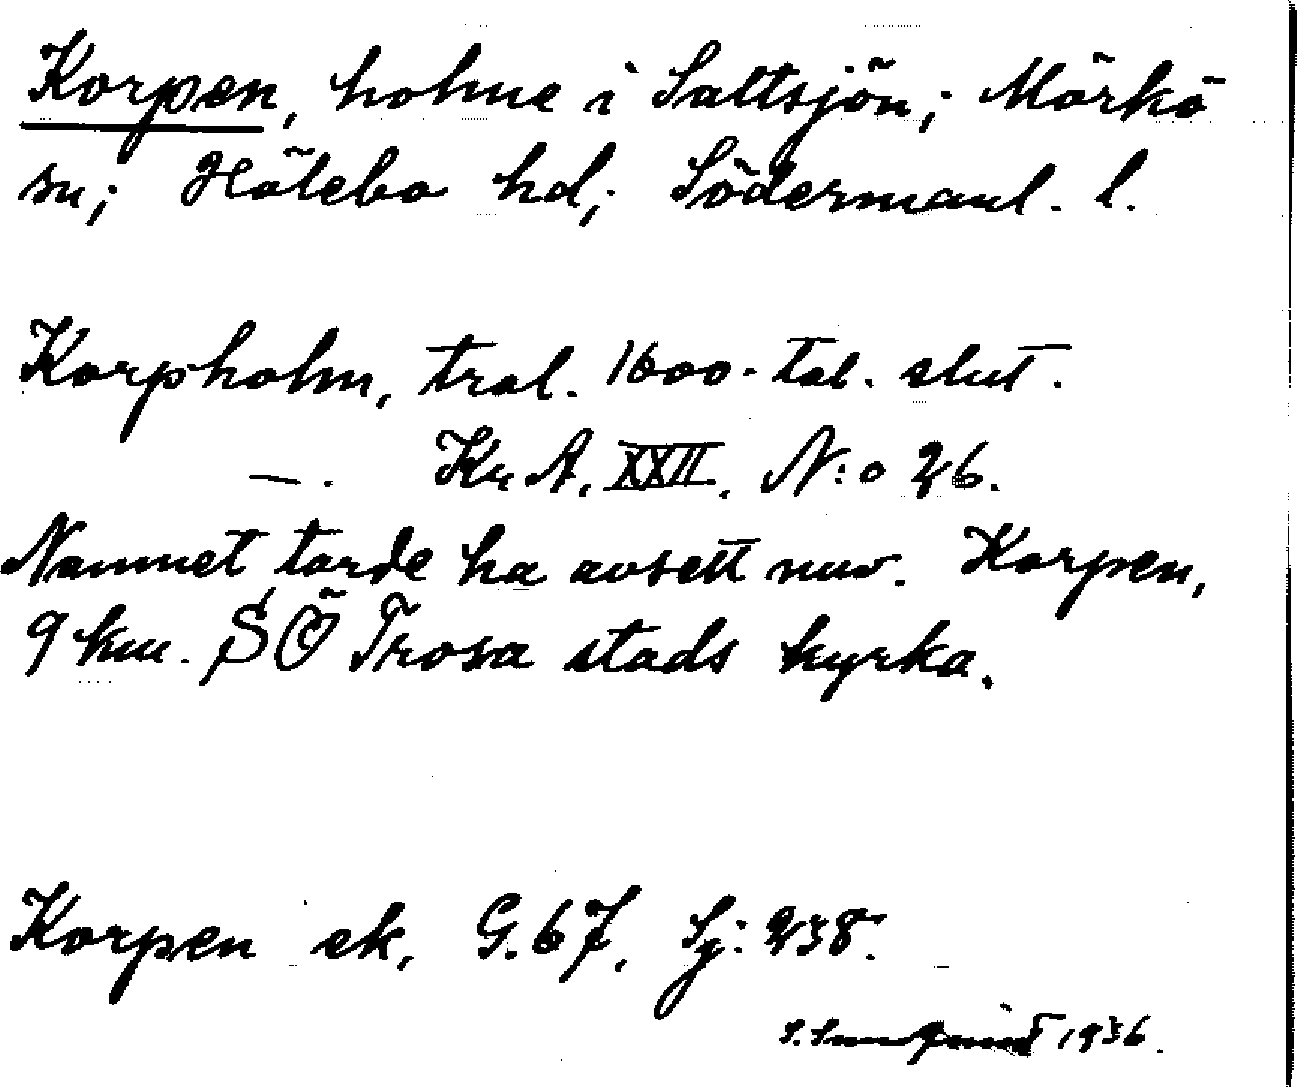 Korpen, holme i Saltsjön; Mörkö
sn; Hölebo hd; Södermanl. l.
Korpholm, tral. 1600-tal. slut.
—. Kr. A. XXII. N:o 26.
Namnet torde ha avsett nuv. Korpen,
9 km. SÖ Trosa stads kyrka.
Korpen ek. G. 67. Sj: 238.
1936.